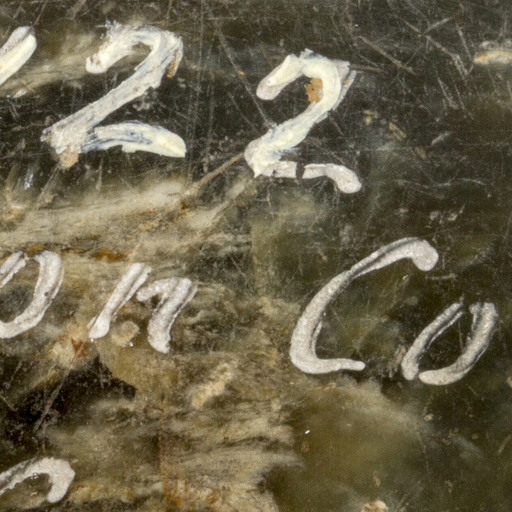 22
on Co